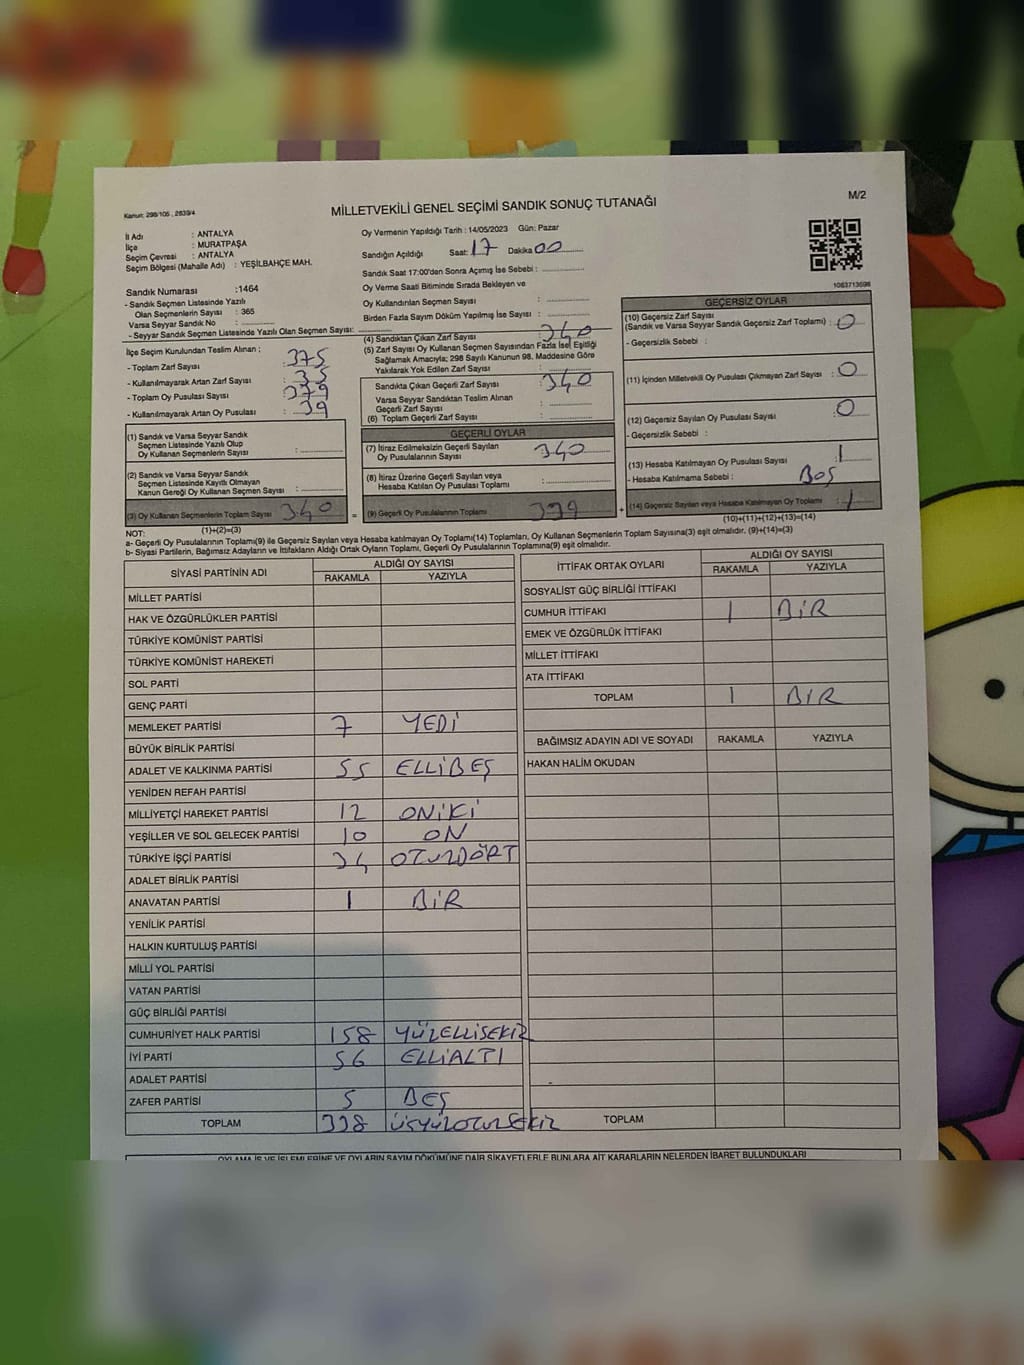 M/2
Kanun: 298/105 , 2839/4
MİLLETVEKİLİ GENEL SEÇİMİ SANDIK SONUÇ TUTANAĞI
İl Adı : ANTALYA
İlçe : MURATPAŞA
Seçim Çevresi : ANTALYA
Seçim Bölgesi (Mahalle Adı) : YEŞİLBAHÇE MAH.
Sandık Numarası :1464
- Sandık Seçmen Listesinde Yazılı
Olan Seçmenlerin Sayısı : 365
Varsa Seyyar Sandık No :
- Seyyar Sandık Seçmen Listesinde Yazılı Olan Seçmen Sayısı:
Oy Vermenin Yapıldığı Tarih : 14/05/2023 Gün: Pazar
Sandığın Açıldığı Saat: 17 Dakika 00
Sandık Saat 17:00'den Sonra Açılmış İse Sebebi :
Oy Verme Saati Bitiminde Sırada Bekleyen ve
Oy Kullandırılan Seçmen Sayısı :
Birden Fazla Sayım Döküm Yapılmış İse Sayısı :
1063713598
İlçe Seçim Kurulundan Teslim Alınan ;
- Toplam Zarf Sayısı : 375
- Kullanılmayarak Artan Zarf Sayısı : 35
- Toplam Oy Pusulası Sayısı : 379
- Kullanılmayarak Artan Oy Pusulası : 39
(1) Sandık ve Varsa Seyyar Sandık
Seçmen Listesinde Yazılı Olup
Oy Kullanan Seçmenlerin Sayısı :
(2) Sandık ve Varsa Seyyar Sandık
Seçmen Listesinde Kayıtlı Olmayan
Kanun Gereği Oy Kullanan Seçmen Sayısı :
(3) Oy Kullanan Seçmenlerin Toplam Sayısı : 340
(1)+(2)=(3)
(4) Sandıktan Çıkan Zarf Sayısı : 340
(5) Zarf Sayısı Oy Kullanan Seçmen Sayısından Fazla İse( Eşitliği
Sağlamak Amacıyla; 298 Sayılı Kanunun 98. Maddesine Göre
Yakılarak Yok Edilen Zarf Sayısı
Sandıkta Çıkan Geçerli Zarf Sayısı : 340
Varsa Seyyar Sandıktan Teslim Alınan
Geçerli Zarf Sayısı :
(6) Toplam Geçerli Zarf Sayısı :
GEÇERLİ OYLAR
(7) İtiraz Edilmeksizin Geçerli Sayılan
Oy Pusulalarının Sayısı : 340
(8) İtiraz Üzerine Geçerli Sayılan veya
Hesaba Katılan Oy Pusulası Toplamı :
= (9) Geçerli Oy Pusulalarının Toplamı 339
GEÇERSİZ OYLAR
(10) Geçersiz Zarf Sayısı
(Sandık ve Varsa Seyyar Sandık Geçersiz Zarf Toplamı) : 0
- Geçersizlik Sebebi :
(11) İçinden Milletvekili Oy Pusulası Çıkmayan Zarf Sayısı : 0
(12) Geçersiz Sayılan Oy Pusulası Sayısı : 0
- Geçersizlik Sebebi :
(13) Hesaba Katılmayan Oy Pusulası Sayısı : 1
- Hesaba Katılmama Sebebi : BOŞ
+ (14) Geçersiz Sayılan veya Hesaba Katılmayan Oy Toplamı : 1
(10)+(11)+(12)+(13)=(14)
NOT:
a- Geçerli Oy Pusulalarının Toplamı(9) ile Geçersiz Sayılan veya Hesaba Katılmayan Oy Toplamı(14) Toplamları, Oy Kullanan Seçmenlerin Toplam Sayısına(3) eşit olmalıdır. (9)+(14)=(3)
b- Siyasi Partilerin, Bağımsız Adayların ve İttifakların Aldığı Ortak Oyların Toplamı, Geçerli Oy Pusulalarının Toplamına(9) eşit olmalıdır.
SİYASİ PARTİNİN ADI ALDIĞI OY SAYISI
RAKAMLA YAZIYLA
MİLLET PARTİSİ
HAK VE ÖZGÜRLÜKLER PARTİSİ
TÜRKİYE KOMÜNİST PARTİSİ
TÜRKİYE KOMÜNİST HAREKETİ
SOL PARTİ
GENÇ PARTİ
MEMLEKET PARTİSİ 7 YEDİ
BÜYÜK BİRLİK PARTİSİ
ADALET VE KALKINMA PARTİSİ 55 ELLİBEŞ
YENİDEN REFAH PARTİSİ
MİLLİYETÇİ HAREKET PARTİSİ 12 ONİKİ
YEŞİLLER VE SOL GELECEK PARTİSİ 10 ON
TÜRKİYE İŞÇİ PARTİSİ 34 OTUZDÖRT
ADALET BİRLİK PARTİSİ
ANAVATAN PARTİSİ 1 BİR
YENİLİK PARTİSİ
HALKIN KURTULUŞ PARTİSİ
MİLLİ YOL PARTİSİ
VATAN PARTİSİ
GÜÇ BİRLİĞİ PARTİSİ
CUMHURİYET HALK PARTİSİ 158 YÜZELLİSEKİZ
İYİ PARTİ 56 ELLİALTI
ADALET PARTİSİ
ZAFER PARTİSİ 5 BEŞ
TOPLAM 338 ÜÇYÜZOTUZSEKİZ
İTTİFAK ORTAK OYLARI ALDIĞI OY SAYISI
RAKAMLA YAZIYLA
SOSYALİST GÜÇ BİRLİĞİ İTTİFAKI
CUMHUR İTTİFAKI 1 BİR
EMEK VE ÖZGÜRLÜK İTTİFAKI
MİLLET İTTİFAKI
ATA İTTİFAKI
TOPLAM 1 BİR
BAĞIMSIZ ADAYIN ADI VE SOYADI RAKAMLA YAZIYLA
HAKAN HALİM OKUDAN
TOPLAM
OYLAMA İŞ VE İŞLEMLERİNE VE OYLARIN SAYIM DÖKÜMÜNE DAİR ŞİKAYETLERLE BUNLARA AİT KARARLARIN NELERDEN İBARET BULUNDUKLARI